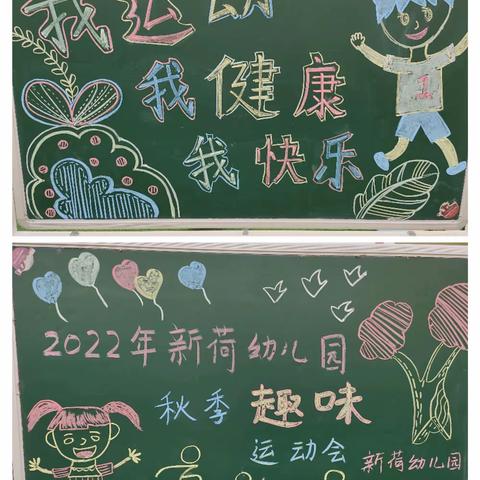 我运动
我健康
我快乐
1
2022年新荷幼儿园
秋季趣味
运动会
新荷幼儿园